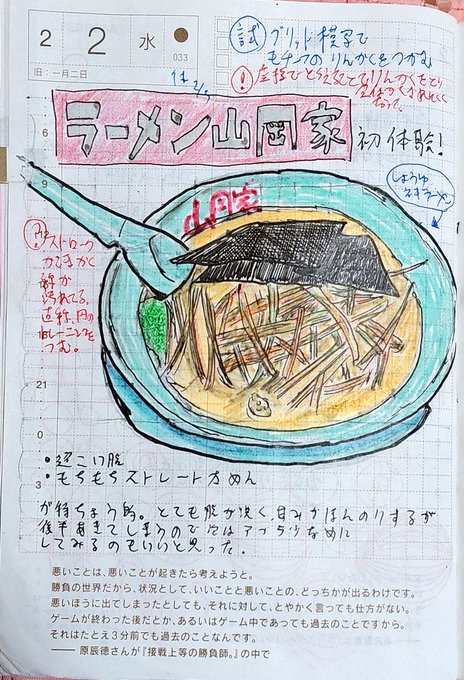 2 2 水
033
旧:一月二日
試 グリッド模写で
モチーフのりんかくをつかむ
! 全体で
ラーメン山岡家 初体験!
しょうゆ
ネギラーメン
山岡家
ストローク
直線、円の
トレーニングを
つむ。
6
9
21
0
3
・超こい脂
・もちもちストレート太めん
が特ちょう的。とても脂が浅く、甘みがほんのりするが
後半あきてしまうので次はアブラ少なめに
してみるのもいいと思った。
悪いことは、悪いことが起きたら考えようと。
勝負の世界だから、状況として、いいことと悪いことの、どっちかが出るわけです。
悪いほうに出てしまったとしても、それに対して、とやかく言っても仕方がない。
ゲームが終わった後だとか、あるいはゲーム中であっても過去のことですから。
それはたとえ3分前でも過去のことなんです。
—— 原辰徳さんが『接戦上等の勝負師。』の中で